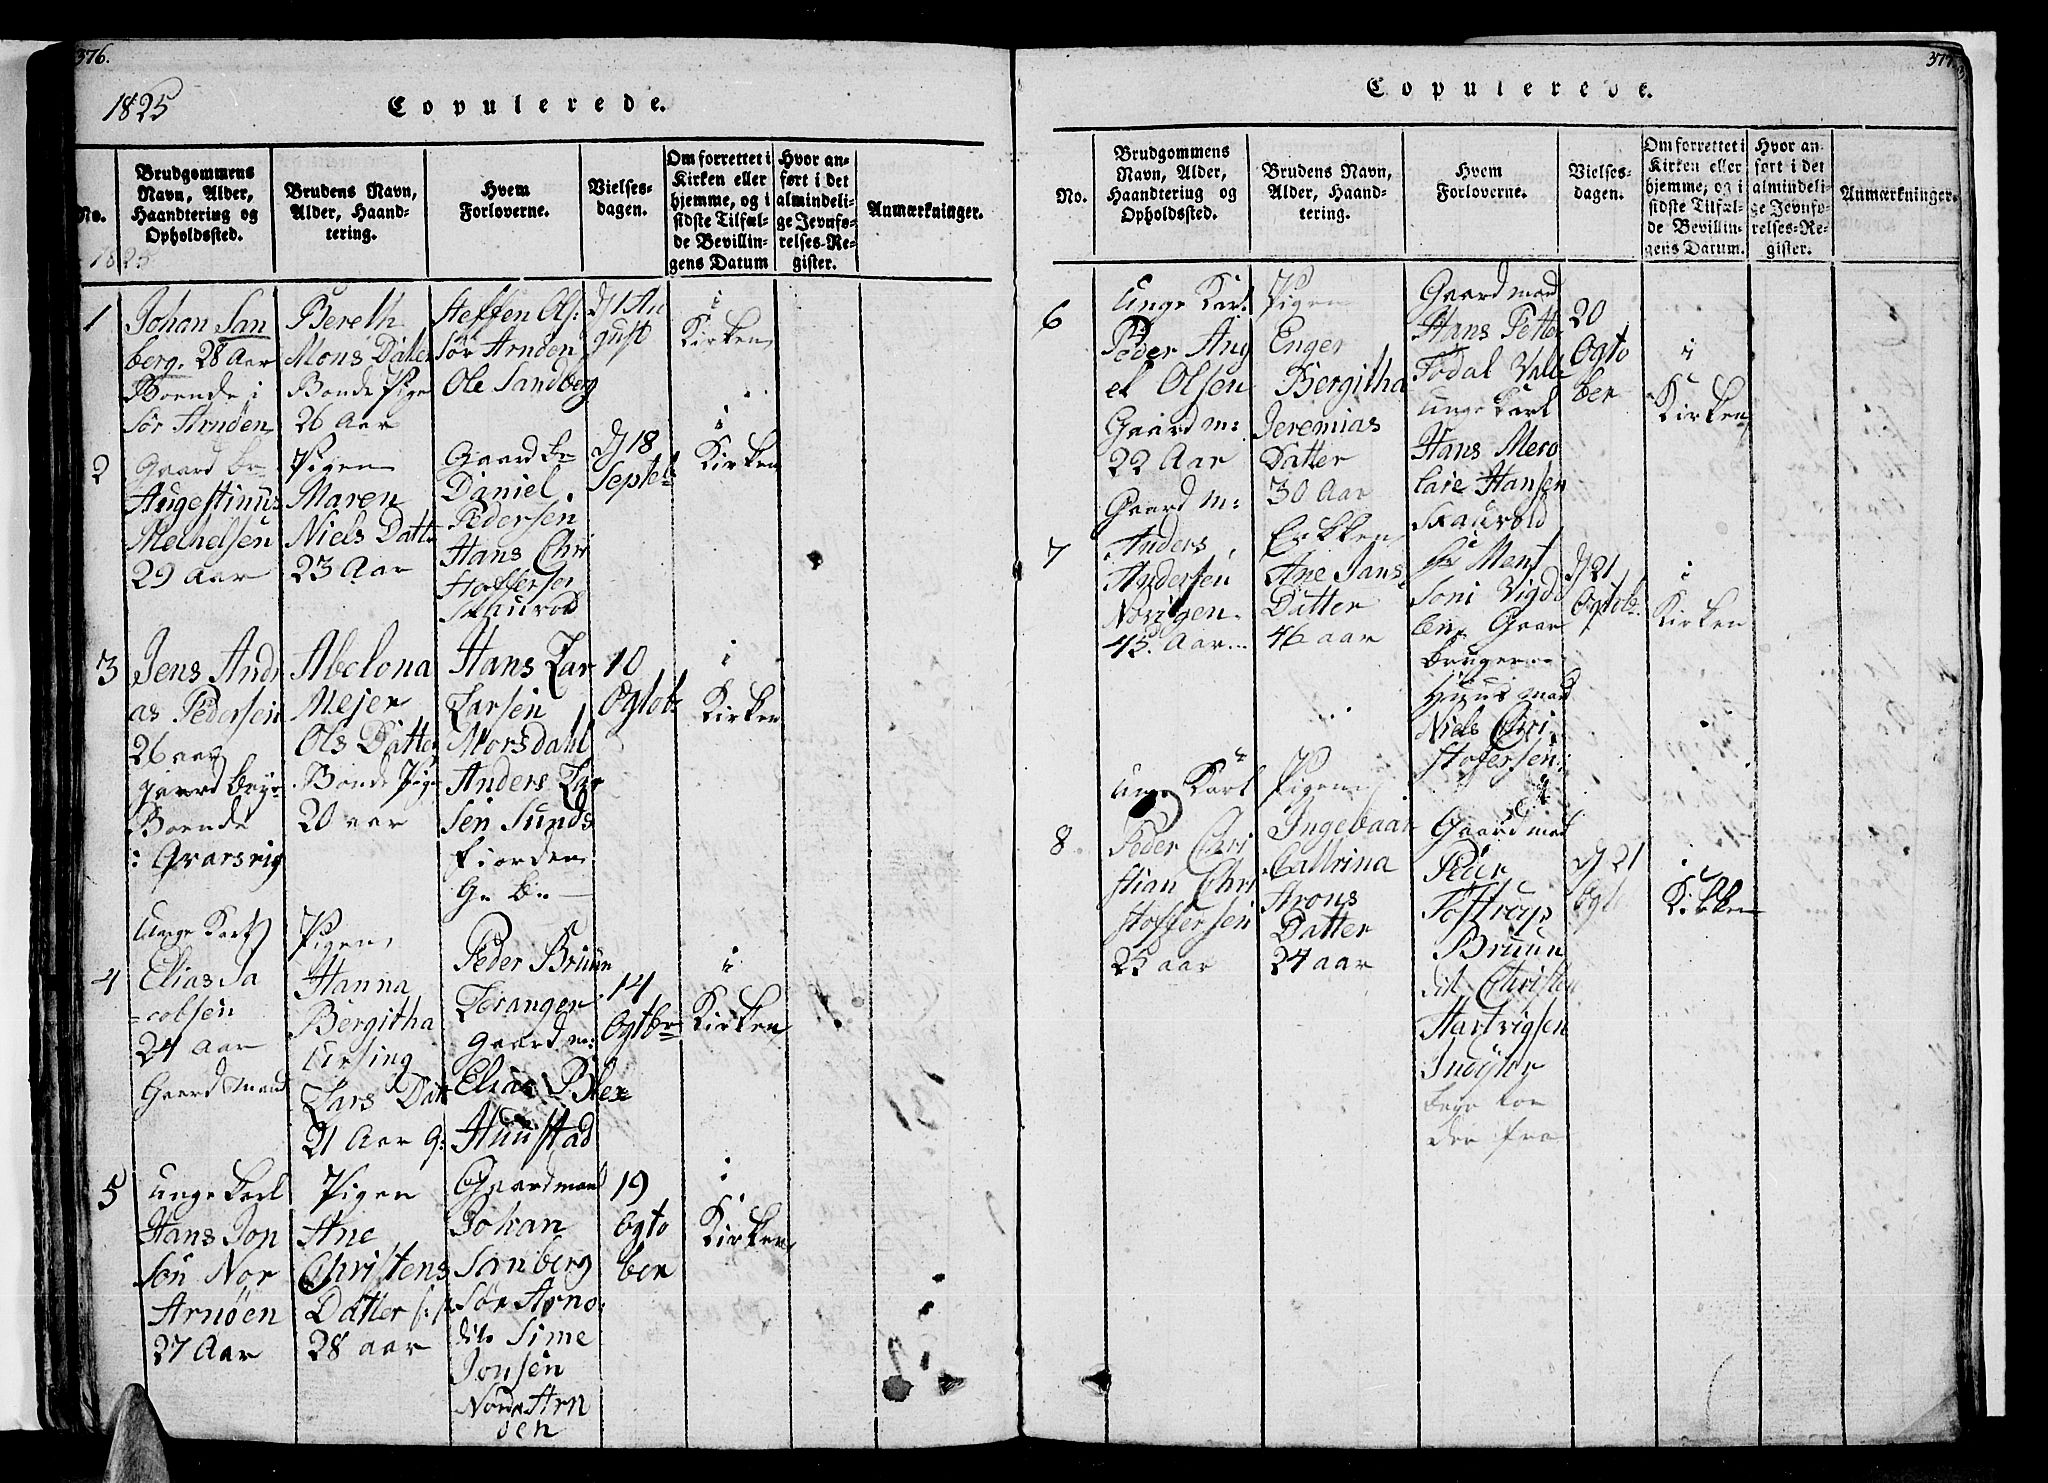 376.
1825
Copulerede.
No.
Brudgommens
Navn, Alder,
Haandtering og
Opholdssted.
Brudens Navn,
Alder, Haand-
tering.
Hvem
Forloverne.
Vielses-
dagen.
Om forrettet i
Kirken eller
hjemme, og i
sidste Tilfæl-
de Bevillin-
gens Datum
Hvor an-
ført i det
almindeli-
ge Jevnfø-
relses-Re-
gister.
Anmærkninger.
1825
1
Johan San
berg. 28 Aar
Boende i
Sør Arnöen
Bereth
Mons Datter
Bonde Pige
26 Aar
Steffen Ols:
Sør Arnöen
Ole Sandberg
D 1 Au
gust
i
Kirken
2
Gaard br
Augestinus
Mechelsen
29 Aar
Pigen
Maren
Niels Datt
23 Aar
Gaard br
Daniel
Pedersen
Hans Chri
stoffersen
Skaurod
D 18
Septe
i
Kirken
3
Jens Andr
as Pedersen
26 aar
gaard bruge
Boende
i Qvarsvig
Abelona
Mejer
Ols Datter
Bonde Pige
20 aar
Hans Lar
Larsen
Morsdahl
Anders Lar
sen Sunds
fiorden
G. b.
10
Ogtob
i
Kirken
4
Unge Karl
Elias Ja
cobsen
24 aar
Gaard mand
Pigen
Hanna
Bergitha
Ursing
Lars Datt
21 Aar g:
Peder Bruun
Lörangen
gaard m:
Elias
Huustad
14
Ogtbr
i
Kirken
5
unge karl
Hans Jon
sen Nor
Arnöen
27 Aar
Pigen
Ane
Christens
Datter
28 aar
Gaardmand
Johan
Sanberg
Sør Arnö
dito Sime
Jonsen
Nord Arn
öen
19
Ogto
ber
i
Kirken
377
Copulerede.
No.
Brudgommens
Navn, Alder,
Haandtering og
Opholdssted.
Brudens Navn,
Alder, Haand-
tering.
Hvem
Forloverne.
Vielses-
dagen.
Om forrettet i
Kirken eller
hjemme, og i
sidste Tilfæl-
de Bevillin-
gens Datum.
Hvor an-
ført i det
almindeli-
ge Jevnfø-
relses-Re-
gister.
Anmærkninger.
6
Unge Karl
Peder Ang
el Olsen
Gaard m:
22 Aar
Gaard m:
Pigen
Enger
Bergitha
Jeremias
Datter
30 Aar
Gaardmand
Hans Petter
Fodal Valle
unge karl
Hans Mero
Hansen
Skaurold
20
Ogto
ber
i
Kirken
7
Anders
Andersen
Norigen
45 Aar
Enken
Ane Jans
Datter
46 aar
Hr Ment
Soni Vigdd
len Gaar
bruger
Huusmand
Niels Chri
stofersen
D 21
Ogtob
i
Kirken
8
Unge Karl
Peder Chri
stian Chri
stoffersen
25 aar
Pigen
Ingebaar
Cathrina
Arons
Datter
24 aar
Gaardmand
Peter
Tostrup
Bruun
dit Christen
Hartvigsen
Indyler
D 21
Ogto
i
Kirken